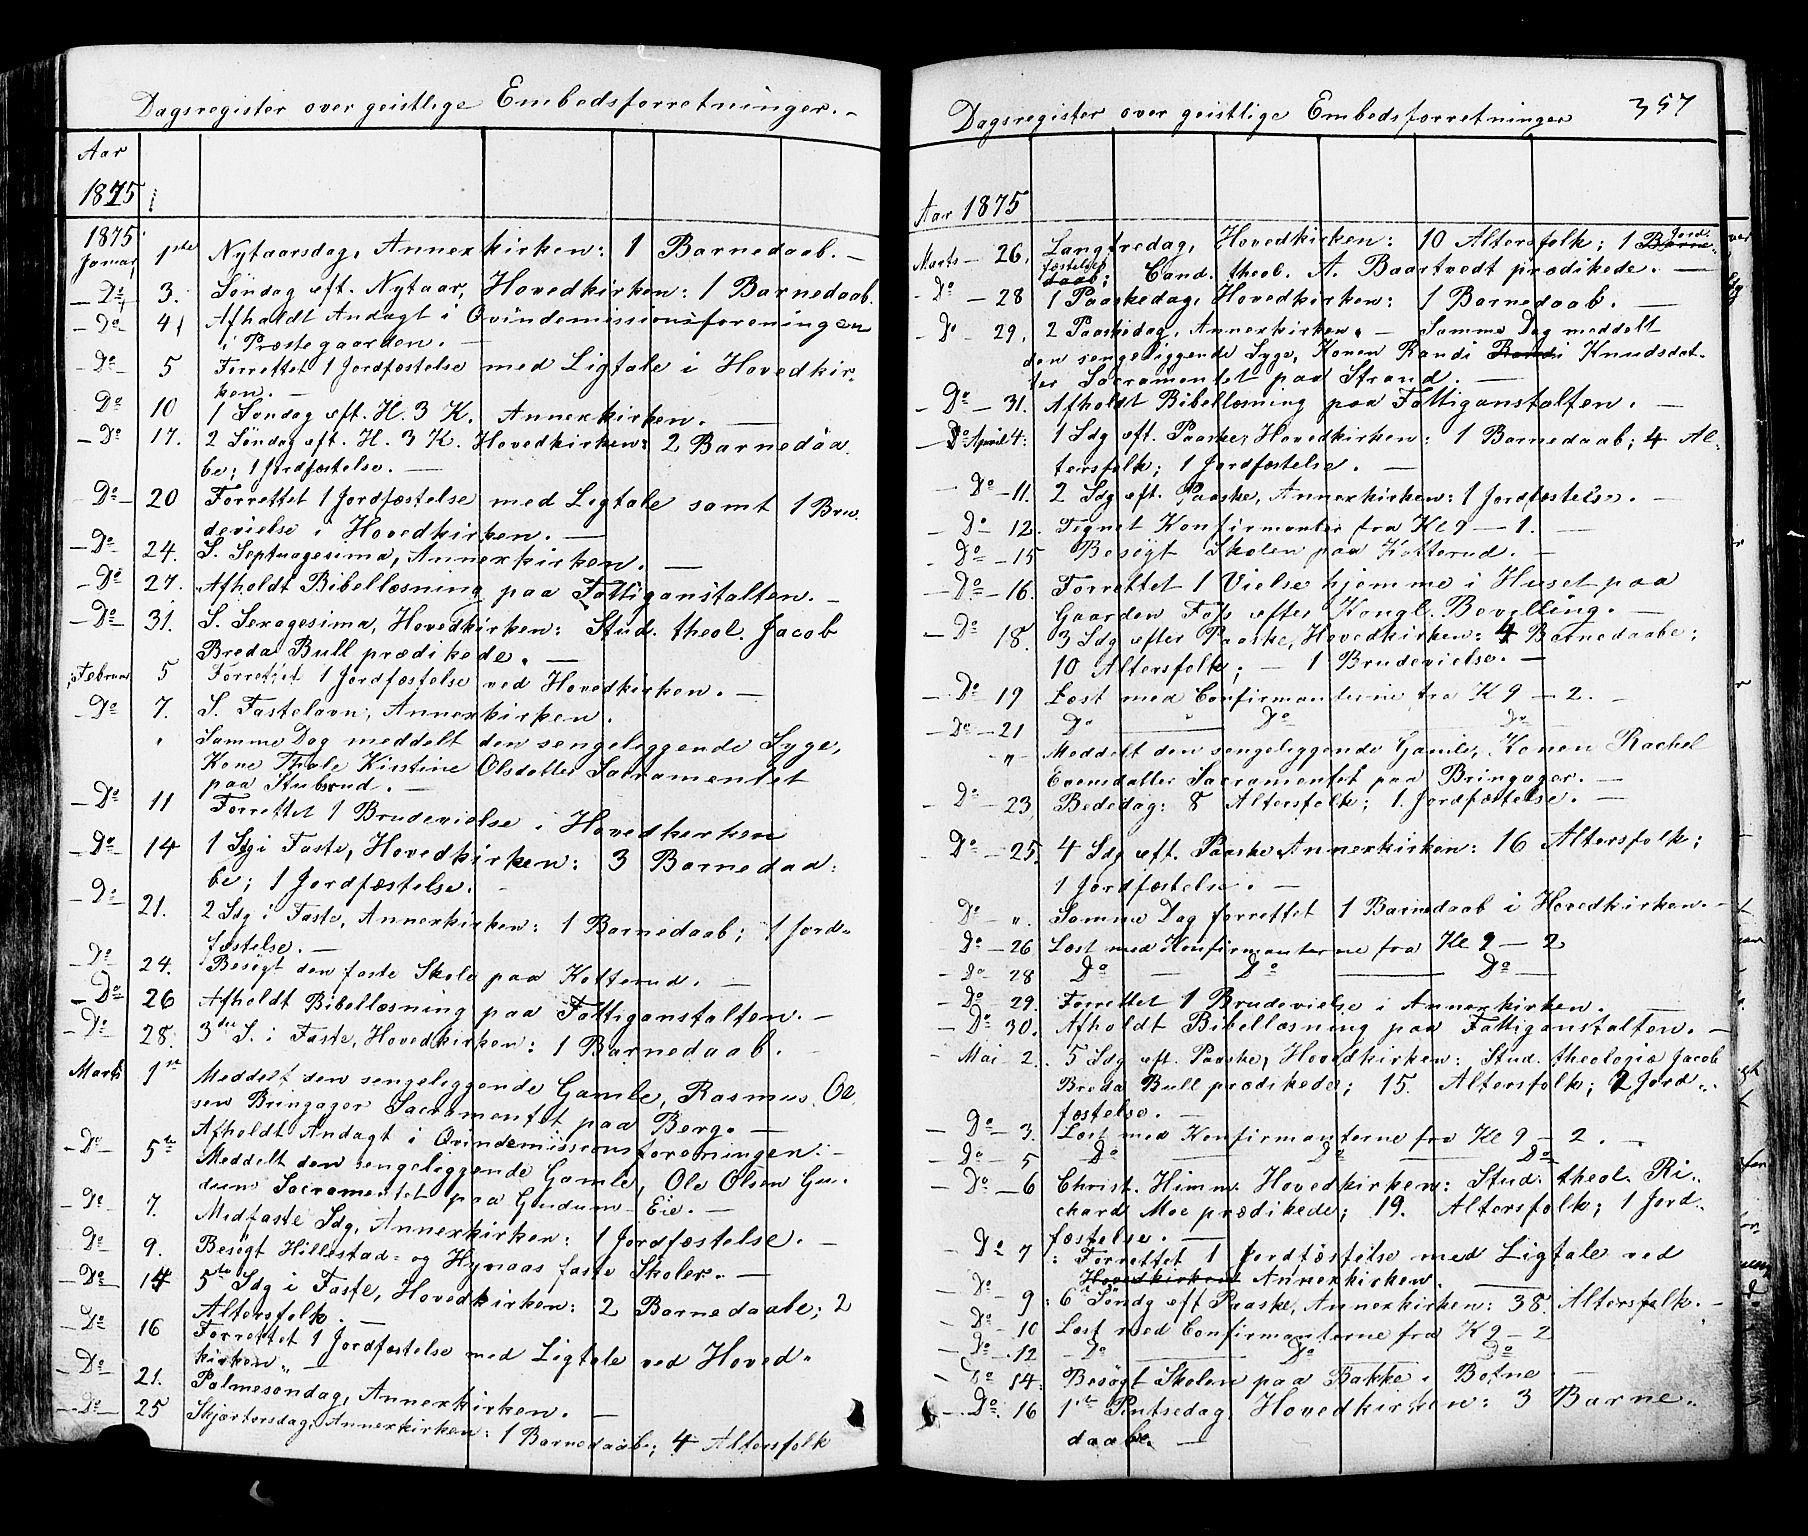 Dagsregister over geistlige Embedsforretninger.-
Aar
1875
1875
Januar 1ste Nytaarsdag, Annexkirken: 1 Barnedaab.-
Do 3. Søndag eft. Nytaar, Hovedkirken: 1 Barnedaab.
Do 4 Afholdt Andagt i Qvindemissionsforeningen
i Præstegaarden.-
Do 5 Forrettet 1 Jordfæstelse med Ligtale i Hovedkir-
ken.-
Do 10 1 Søndag eft. H. 3 K. Annexkirken.-
Do 17. 2 Søndag eft. H. 3 K. Hovedkirken: 2 Barnedaa
be; 1 Jordfæstelse.-
Do 20 Forrettet 1 Jordfæstelse med Ligtale samt 1 Bru
devielse i Hovedkirken.-
Do 24. S. Septuagesima, Annexkirken.-
Do 27. Afholdt Bibellæsning paa Fattiganstalten.-
Do 31. S. Sexagesima, Hovedkirken: Stud. theol. Jacob
Breda Bull prædikede.-
Februar 5 Forrettet 1 Jordfæstelse ved Hovedkirken.-
Do 7. S. Fastelavn, Annexkirken.
" Samme Dag meddelt den sengeliggende Syge,
Kone Thale Kirstine Olsdatter Sacramentet
paa Stubsrud.-
Do 11 Forrettet 1 Brudevielse i Hovedkerken
Do 14 1 Sdg i Faste, Hovedkirken: 3 Barnedaa:
be; 1 Jordfæstelse.-
Do 21. 2 Sdg i Faste, Annexkirken: 1 Barnedaab; 1 Jord-
fæstelse.-
Do 24. Besøgt den faste Skole paa Kotterud.-
Do 26 Afholdt Bibellæsning paa Fattiganstalten.-
Do 28. 3die S. i Faste, Hovedkirken: 1 Barnedaab.-
Marts 1ste Meddelt den sengeliggende Gamle, Rasmus Ol
sen Bringager Sacramentet paa Berg.-
Afholdt Andagt i Qvindemissionsforeningen.-
Do 5te Meddelt den sengeliggende Gamle, Ole Olsen Gu-
dum Sacramentet paa Gudum-Eie.-
Do 7. Midfaste Sdg, Annexkirken: 1 Jordfæstelse.-
Do 9. Besøgt Hillestad- og Hynaas faste Skoler.-
Do 14 5te Sdg i Faste, Hovedkirken: 2 Barnedaabe; 2
Altersfolk.-
Do 16 Forrettet 1 Jordfæstelse med Ligtale ved Hoved-
kirken.-
Do 21. Palmesøndag, Annexkirken.-
Do 25 Skjærtorsdag, Annexkirken: 1 Barnedaab; 4 Altersfolk
Dagsregister over geistlige Embedsforretninger 357
Aar 1875
Marts - 26. Langfredag, Hovedkirken: 10 Altersfolk; 1 Barne- Jord-
daab; fæstelse; Cand. theol. A. Baastvedt prædikede.-
Do - 28 1 Paaskedag, Hovedkirken: 1 Barnedaab.-
Do 29. 2 Paaskedag, Annexkirken.- Samme Dag meddelt
den sengeliggende Syge, Konen Randi Randi Knudsdat-
ter Sacramentet paa Strand.-
Do - 31. Afholdt Bibellæsning paa Fattiganstalten.-
Do April 4. 1 Sdg eft. Paaske, Hovedkirken: 1 Barnedaab; 4 Al-
tersfolk; 1 Jordfæstelse.-
Do - 11. 2 Sdg eft. Paaske, Annexkirken: 1 Jordfæstelse.-
Do 12. Tegnet Konfirmanter fra Kl 9 - 1.-
Do - 15 Besøgt Skolen paa Kotterud.-
Do - 16. Forrettet 1 Vielse hjemme i Huset paa
Gaarden Fos efter Kongl. Bevilling.-
Do 18. 3 Sdg efter Paaske, Hovedkirken: 4 Barnedaabe;
10 Altersfolk;- 1 Brudevielse.-
Do 19 Læst med Confirmanterne fra K 9 - 2.-
Do - 21 Do Do Do
- " - Meddelt den sengeliggende Gamle, Konen Rachel
Evensdatter Sacramentet paa Bringager.-
Do - 23 Bededag: 8 Altersfolk; 1 Jordfæstelse.-
Do - 25. 4 Sdg eft. Paaske Annexkirken: 16 Altersfolk;
1 Jordfæstelse.-
Do " Samme Dag forrettet 1 Barnedaab i Hovedkirken.-
Do - 26 Læst med Konfirmanterne fra Kl 9 - 2
Do 28 Do - Do - Do -
Do - 29. Forrettet 1 Brudevielse i Annexkirken.-
Do - 30. Afholdt Bibellæsning paa Fattiganstalten.-
Mai 2. 5 Sdg eft. Paaske, Hovedkirken: Stud. theologiæ Jacob
Breda Bull prædikede; 15. Altersfolk; 2 Jord-
fæstelse.-
Do - 3. Læst med Konfirmanterne fra Kl 9 - 2.-
Do - 5 Do Do Do
Do - 6 Christ. Himm. Hovedkirken: Stud. theol. Ri-
chard Moe prædikede; 19. Altersfolk; 1 Jord-
fæstelse.-
Do 7 Forrettet 1 Jordfæstelse med Ligtale ved
Hovedkirken Annexkirken.
Do 9 6te Søndg eft Paaske, Annexkirken: 38. Altersfolk.-
Do - 10 Læst med Confirmanterne fra K 9 - 2
Do - 12 Do Do Do
Do 14. Besøgt Skolen paa Bakke i Botne -
Do 16 1ste Pintsedag, Hovedkirken: 3 Barne-
daabe.-